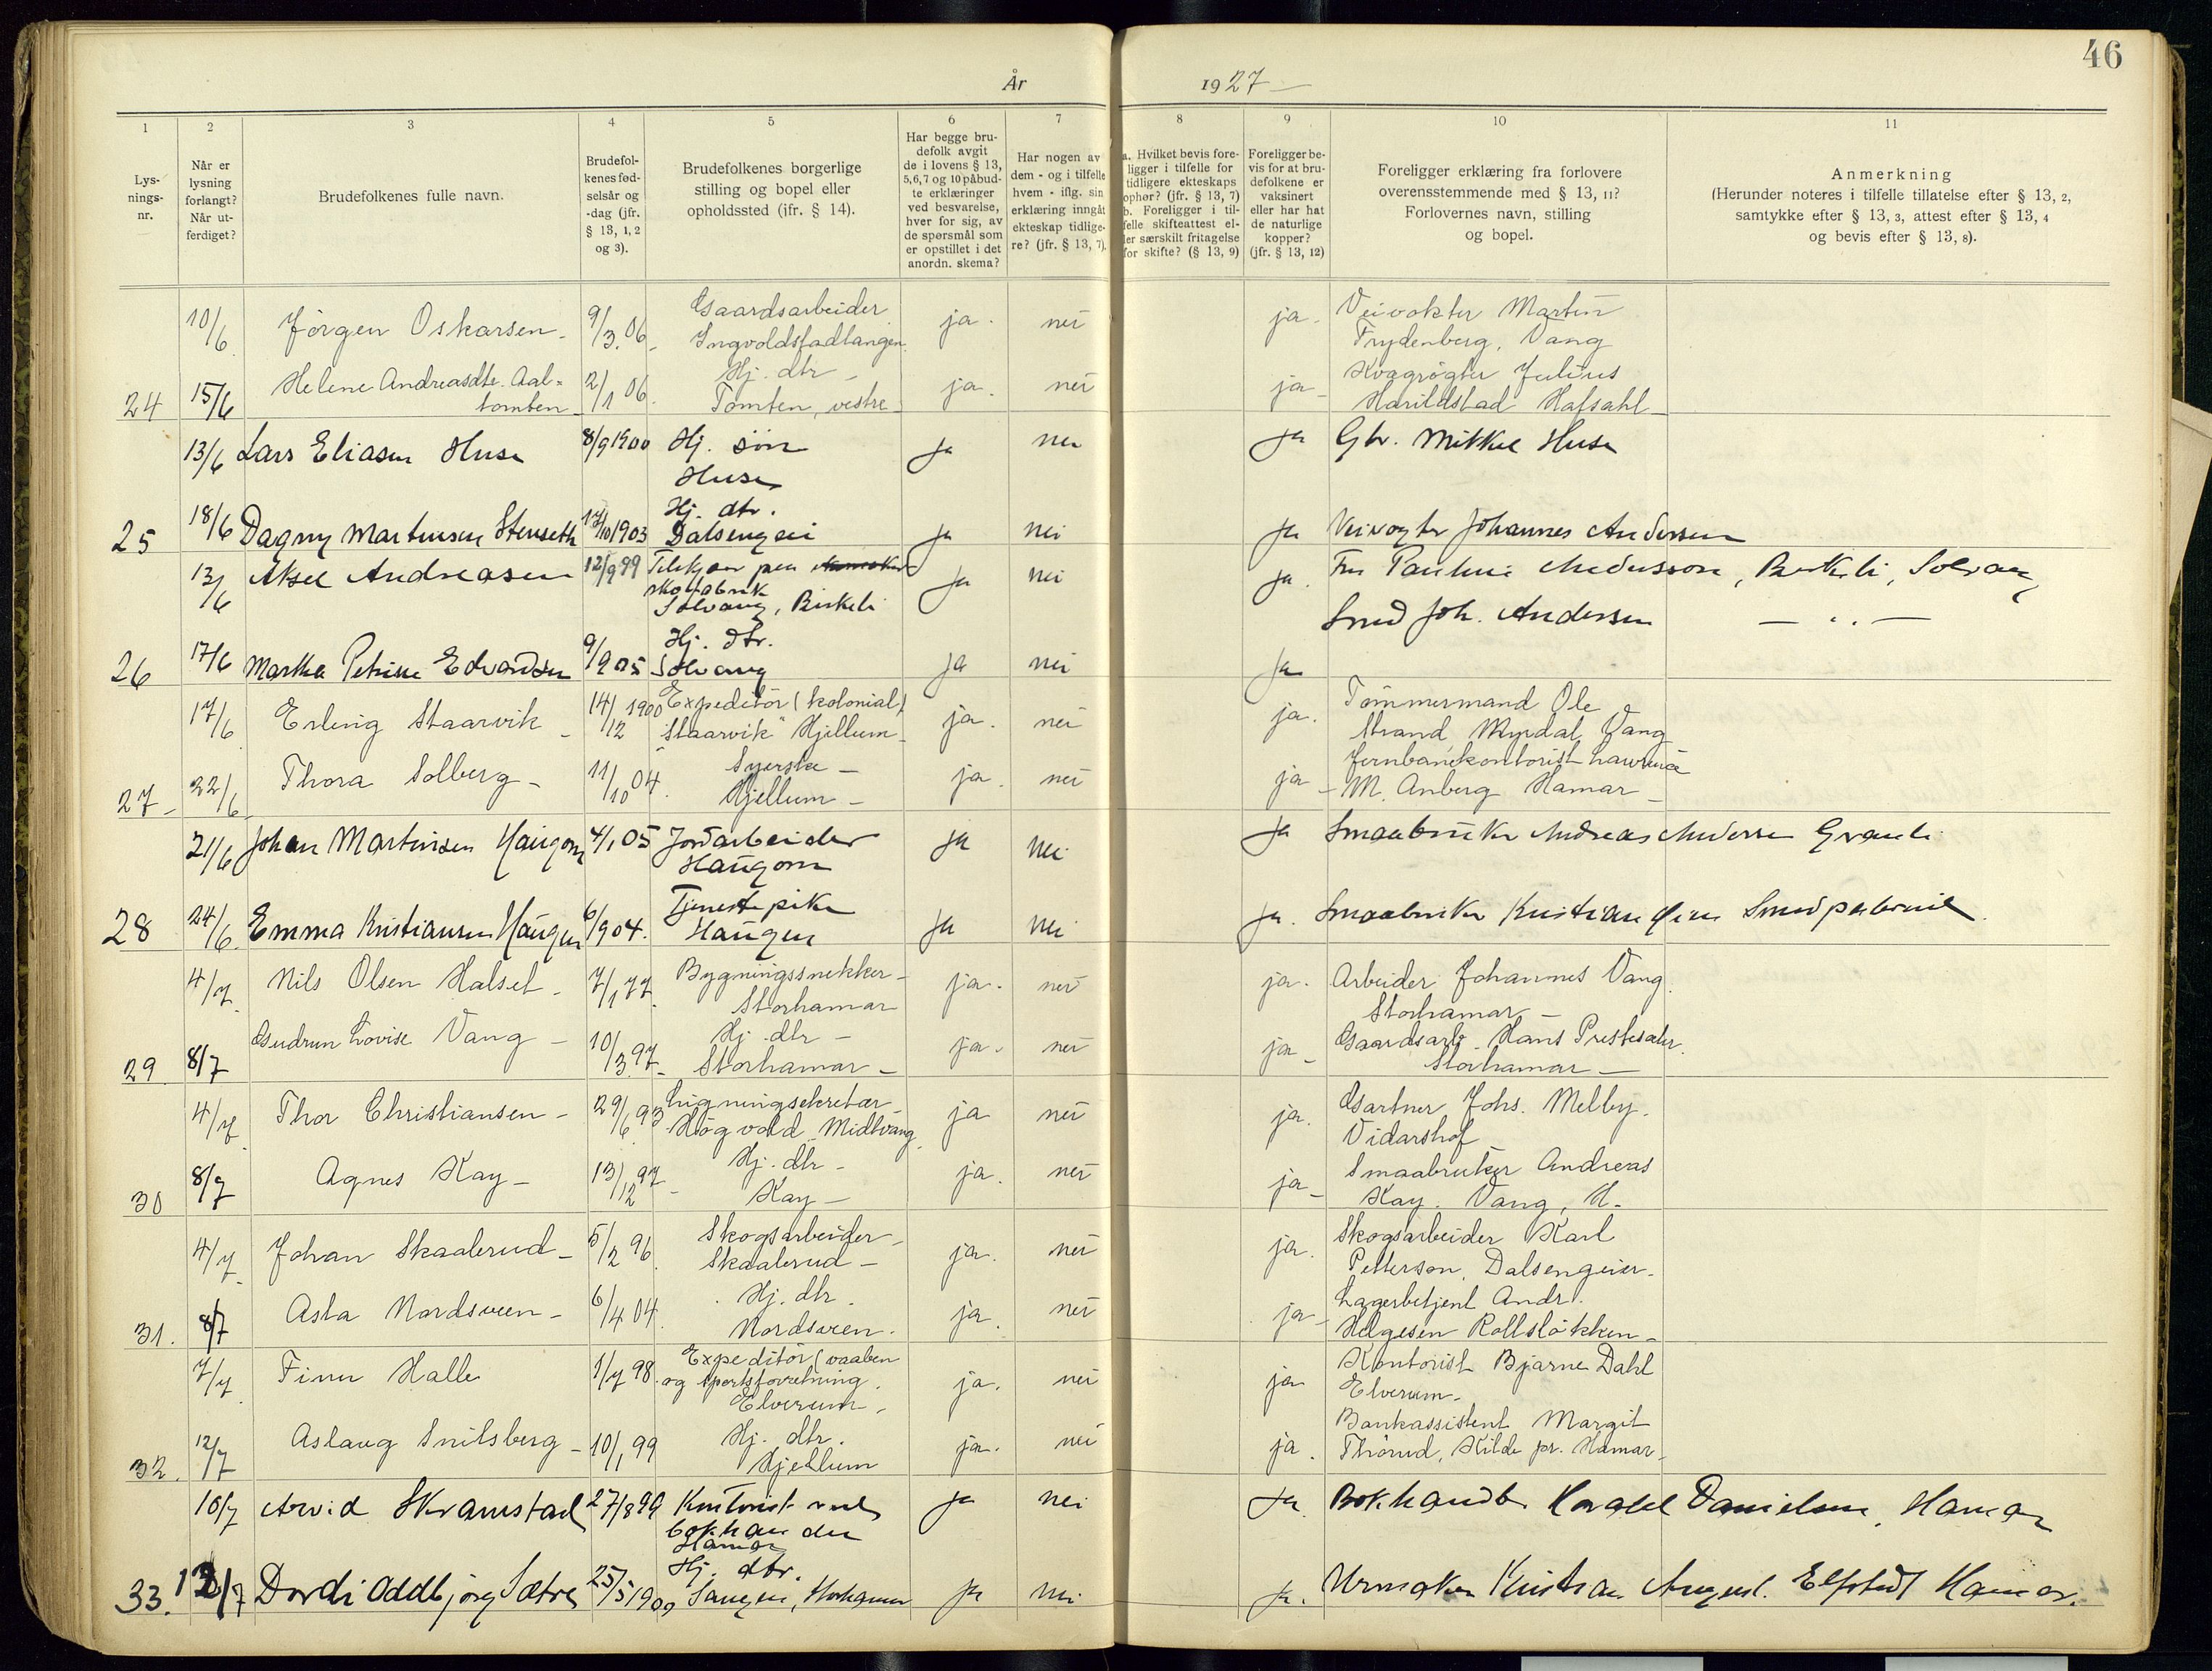 46
År 1927
1 2 3 4 5 6 7 8 9 10 11
Lys-
nings-
nr.
Når er
lysning
forlangt?
Når ut-
ferdiget?
Brudefolkenes fulle navn.
Brudefol-
kenes fød-
selsår og
-dag (jfr.
§ 13, 1, 2
og 3).
Brudefolkenes borgerlige
stilling og bopel eller
opholdssted (jfr. § 14).
Har begge bru-
defolk avgit
de i lovens § 13,
5,6,7 og 10 påbud-
te erklæringer
ved besvarelse,
hver for sig, av
de spørsmål som
er opstillet i det
anordn. skema?
Har nogen av
dem - og i tilfelle
hvem - iflg. sin
erklæring inngåt
ekteskap tidlige-
re? (jfr. § 13, 7).
a. Hvilket bevis fore-
ligger i tilfelle for
tidligere ekteskaps
ophør? (jfr. § 13, 7)
b. Foreligger i til-
felle skifteattest el-
ler særskilt fritagelse
for skifte? (§ 13, 9)
Foreligger be-
vis for at bru-
defolkene er
vaksinert
eller har hat
de naturlige
kopper?
(jfr. § 13, 12)
Foreligger erklæring fra forlovere
overensstemmende med § 13, 11?
Forlovernes navn, stilling
og bopel.
Anmerkning
(Herunder noteres i tilfelle tillatelse efter § 13, 2,
samtykke efter § 13, 3, attest efter § 13, 4
og bevis efter § 13, 8).
10/6 Jörgen Oskarsen - 9/3.06 - Gaardsarbeider Ingvoldstadtangen. ja. nei ja. Veivokter Martin
Frydenberg, Vang
24 15/6 Helene Andreasdtr. Aal=
tomten - 2/1 06. Hj. dtr - Tomten, vestre - ja. nei ja - Kvægrögter Julius
Harildstad Hafsahl -
13/6 Lars Eliasen Huse 8/9 1900 Hj. sön
Huse ja nei ja Gbr. Mikkel Huse
25 18/6 Dagny Martinsen Stenseth 17/10 1903 Hj. dtr.
Dalsengen ja nei ja Veivogter Johannes Andersen
13/6 Aksel Andreasen 12/9 99 paa
skofabrik
Solvang, Birkeli ja nei ja. Fru Pauline , Birkeli, Solvang
Smed Joh. Andersen — " —
26 17/6 Martha Petrine Edvardsen 9/9 05 Hj. dtr.
Solvang ja nei ja
17/6 Erling Staarvik - 14/12 1900 Expeditör (kolonial)
"Staarvik" Hjellum - ja. nei ja. Tömmermand Ole
Strand, Myrdal, Vang
27 - 22/6 Thora Solberg - 11/10 04. Syerske -
Hjellum - ja. nei ja - Jernbanekontorist
M. Anberg Hamar -
21/6 Johan Martinsen Haugom 4/1 05 Jordarbeider
Haugom ja nei ja Smaabruker Andreas Andersen
28 24/6 Emma Kristiansen Haugen 6/9 04. Tjenestepike
Haugen ja nei ja. Smaabruker Kristian
4/7. Nils Olsen Halset - 7/1 77. Bygningssnekker -
Storhamar ja. nei ja. Arbeider Johannes Vang.
Storhamar -
29. 8/7 Gudrun Lovise Vang - 10/3 97 - Hj. dtr -
Storhamar - ja. nei ja - Gaardsarb. Hans Prestesæter.
Storhamar -
4/7. Thor Christiansen - 29/6 93 Ligningsekretær -
Høgvold Midtvang. ja nei ja. Gartner Johs. Melby.
Vidarshof
30 8/7 Agnes Kay - 13/12 97 - Hj. dtr -
Kay - ja. nei ja - Smaabruker Andreas
Kay. Vang, H.
4/7 Johan Skaalerud - 5/2 96. Skogsarbeider -
Skaalerud - ja. nei ja. Skogsarbeider Karl
Petterson, Dalsengeier.
31. 8/7 Asta Nordsveen - 6/4 04. Hj. dtr.
Nordsveen. ja. nei ja - Lagerbetjent Andr.
Helgesen Rollsløkken -
7/7. Finn Halle 1/7 98. Expeditör (vaaben
og sportsforretning.
Elverum. ja. nei ja Kontorist Bjarne Dahl
Elverum.
32. 12/7 Aslaug Snilsberg - 10/1 99 Hj. dtr.
Hjellum ja. nei ja. Bankassistent Margit
Thörud, Kilde pr. Hamar.
10/7 Arvid Skramstad 27/8 99 Kontorist ved
bokhandel
Hamar ja nei ja. Bokhandler Harald Danielsen, Hamar
33. 12/7 Dordi Oddbjörg Sætre 25/5 1900 Hj. dtr.
Sangen, Storhamar ja nei ja. Urmaker Kristian August Elfstedt Hamar.